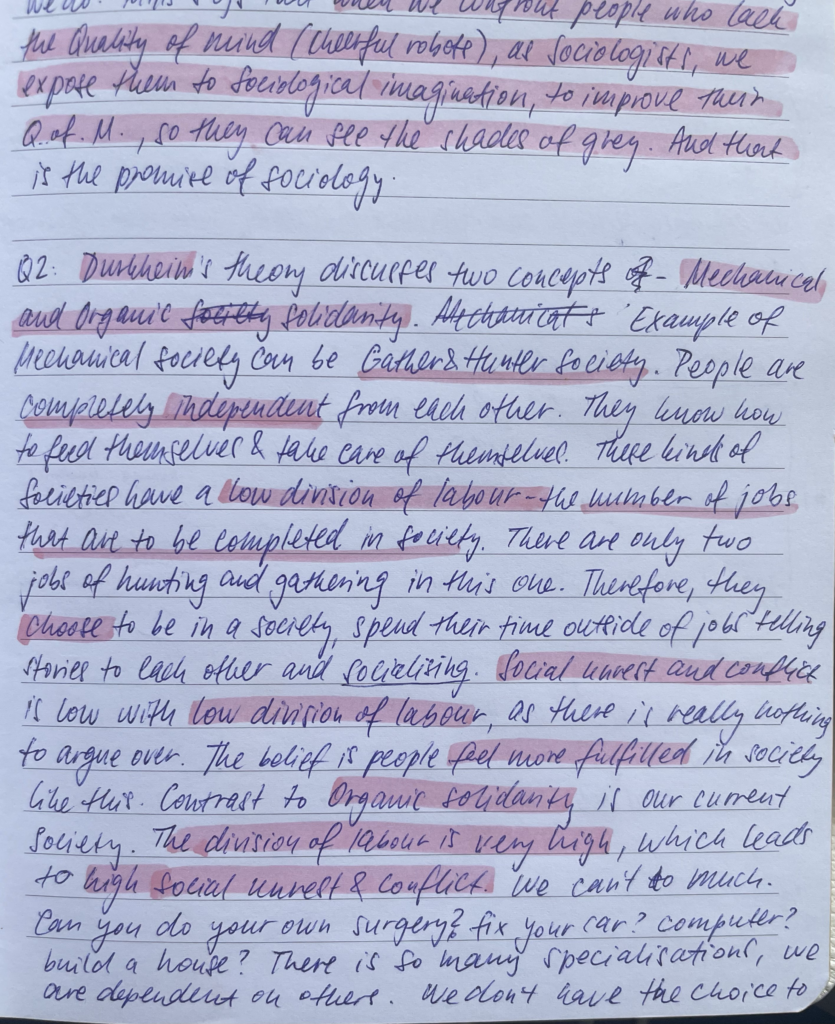 when we confront people who lack
the Quality of mind (cheerful robots), as sociologists, we
expose them to sociological imagination, to improve their
Q.of.M., so they can see the shades of grey. And that
is the promise of sociology.
Q2: Durkheim's theory discusses two concepts - Mechanical
and Organic society solidarity. Mechanical s Example of
Mechanical society can be Gather & Hunter society. People are
completely independent from each other. They know how
to feed themselves & take care of themselves. These kinds of
societies have a low division of labour - the number of jobs
that are to be completed in society. There are only two
jobs of hunting and gathering in this one. Therefore, they
choose to be in a society, spend their time outside of jobs telling
stories to each other and socialising. Social unrest and conflict
is low with low division of labour, as there is really nothing
to argue over. The belief is people feel more fulfilled in society
like this. Contrast to Organic solidarity is our current
society. The division of labour is very high, which leads
to high social unrest & conflict. We can't to much.
Can you do your own surgery? fix your car? computer?
build a house? There is so many specialisations, we
are dependent on others. We don't have the choice to